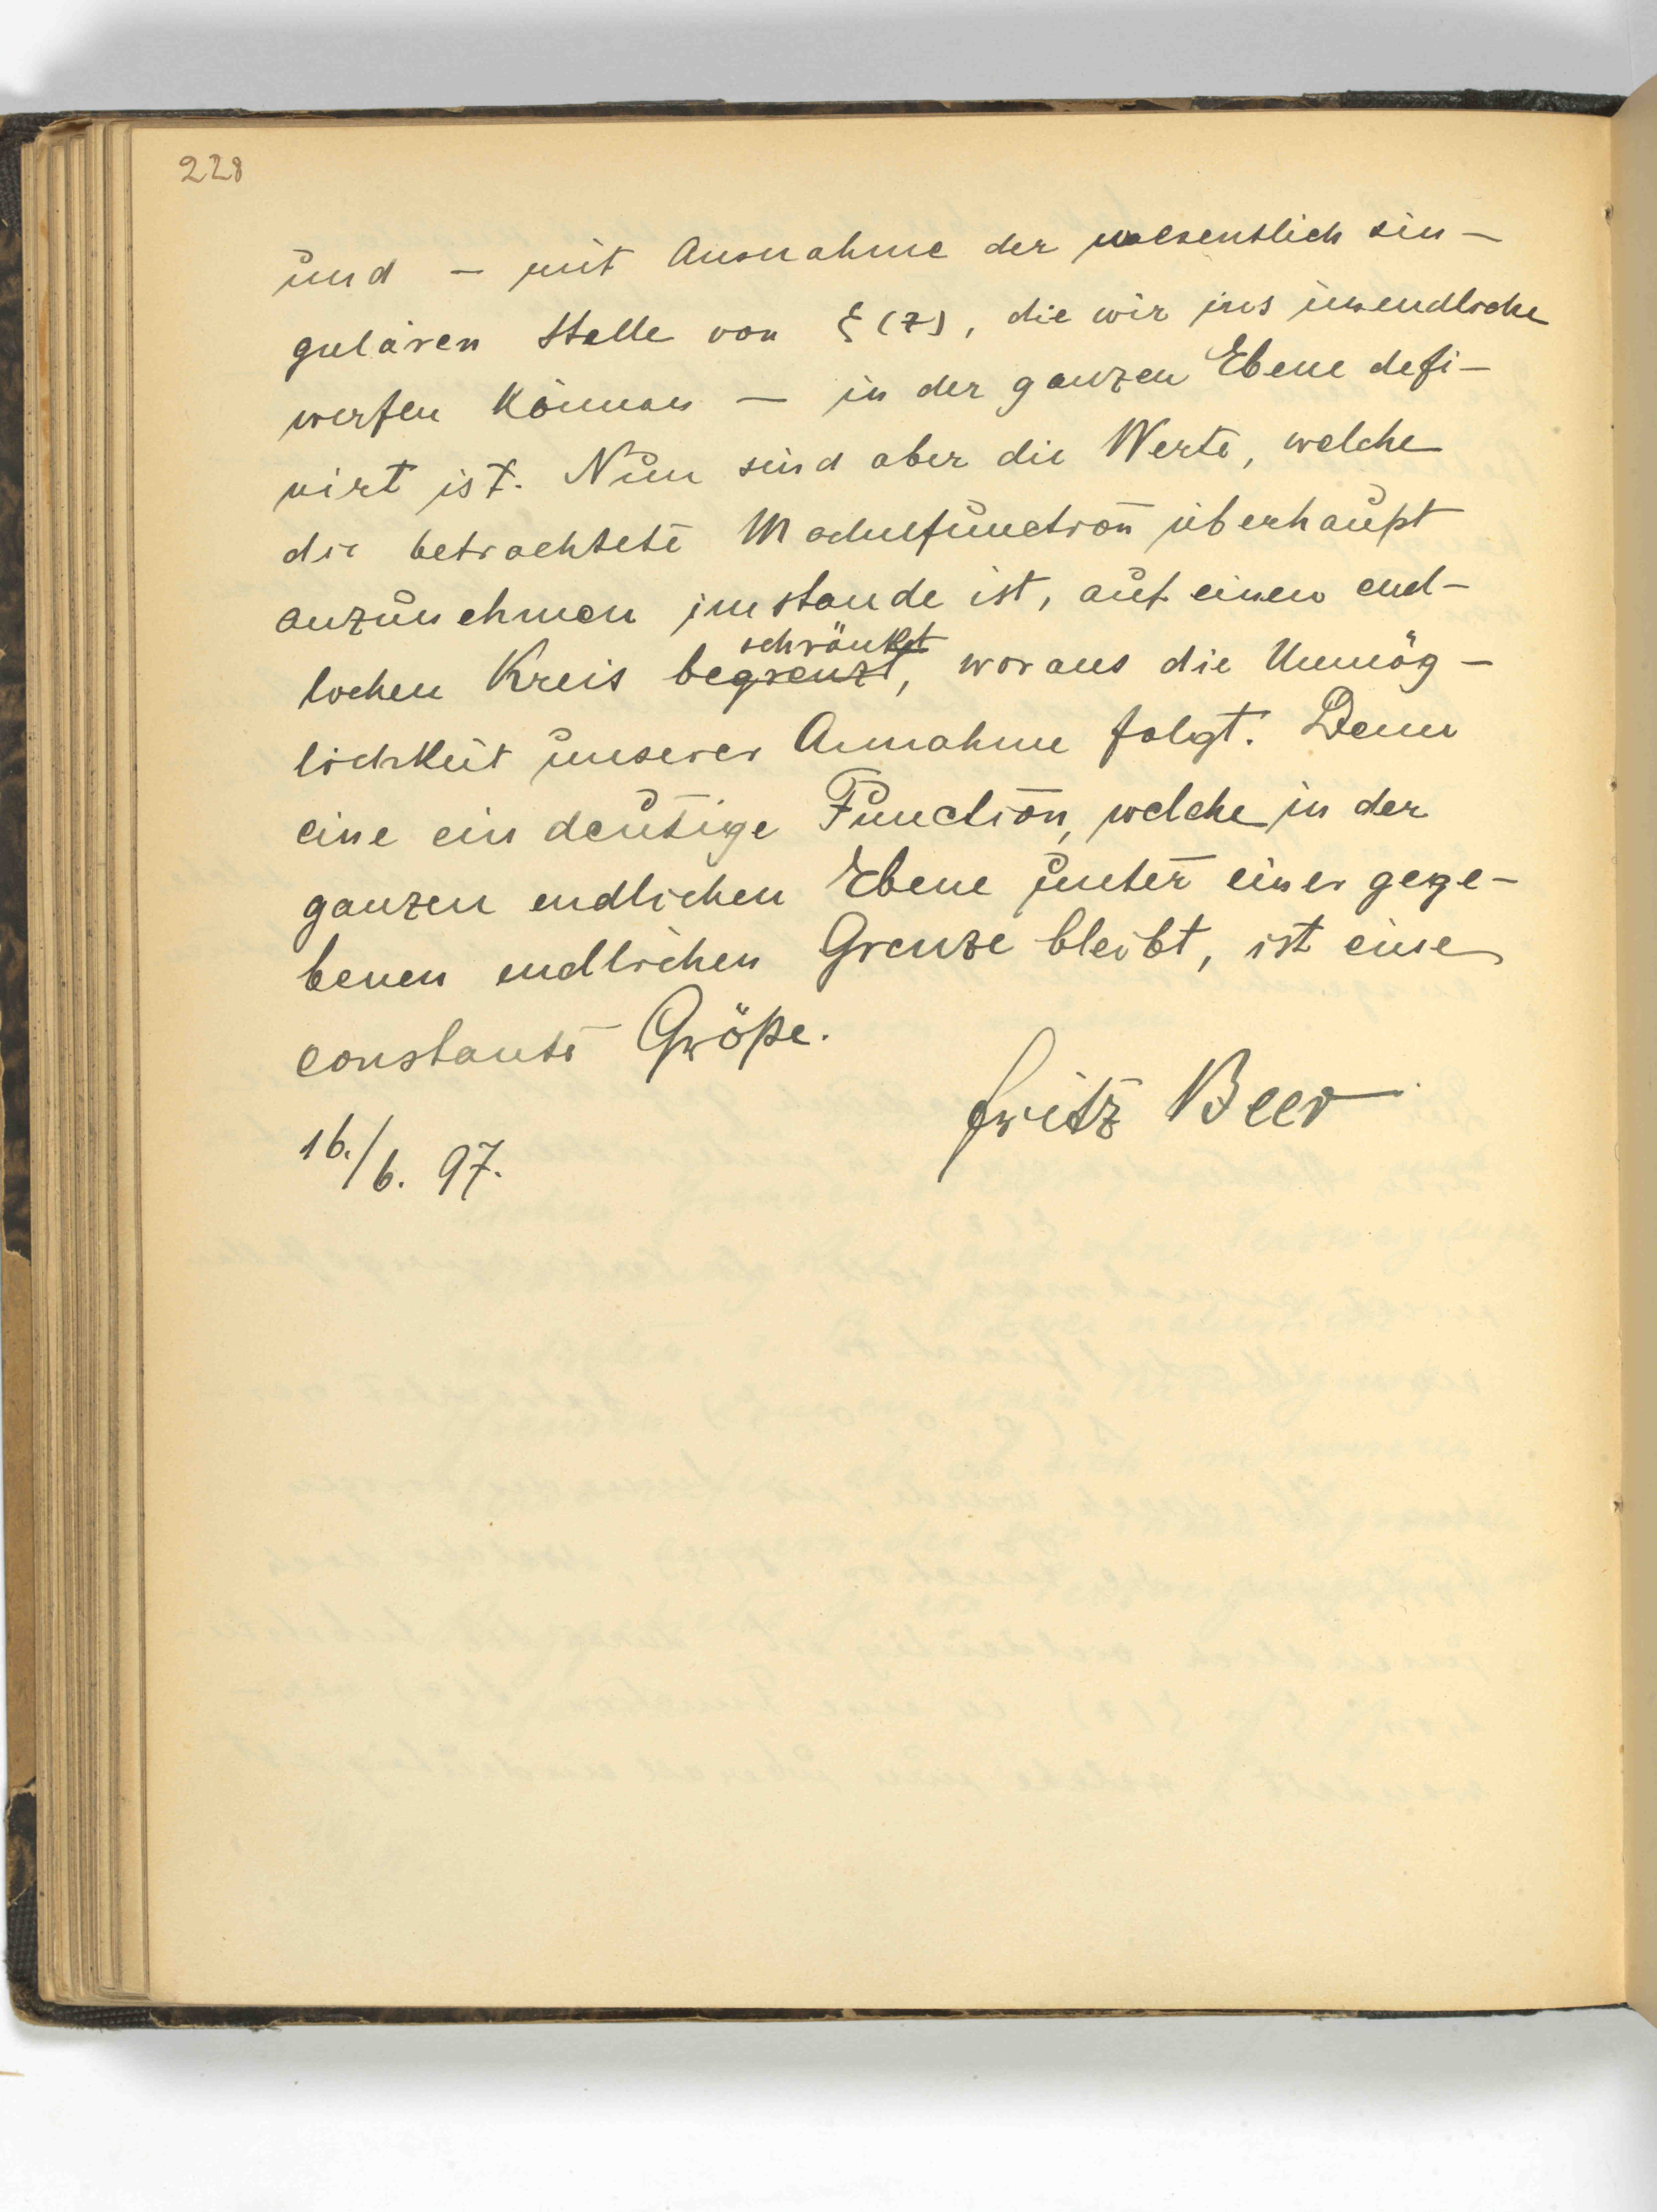 228
und — mit Ausnahme der wesentlich sin-
gulären Stelle von ξ(z), die wir ins unendliche
werfen können — in der ganzen Ebene defi-
nirt ist. Nun sind aber die Werte, welche
die betrachtete Modulfunction überhaupt
anzunehmen imstande ist, auf einen end-
schränkt
lichen Kreis begrenzt, woraus die Unmög-
lichkeit unserer Annahme folgt. Denn
eine eindeutige Function, welche in der
ganzen endlichen Ebene unter einer gege-
benen endlichen Grenze bleibt, ist eine
constante Größe.
Fritz Beer
16./6. 97.